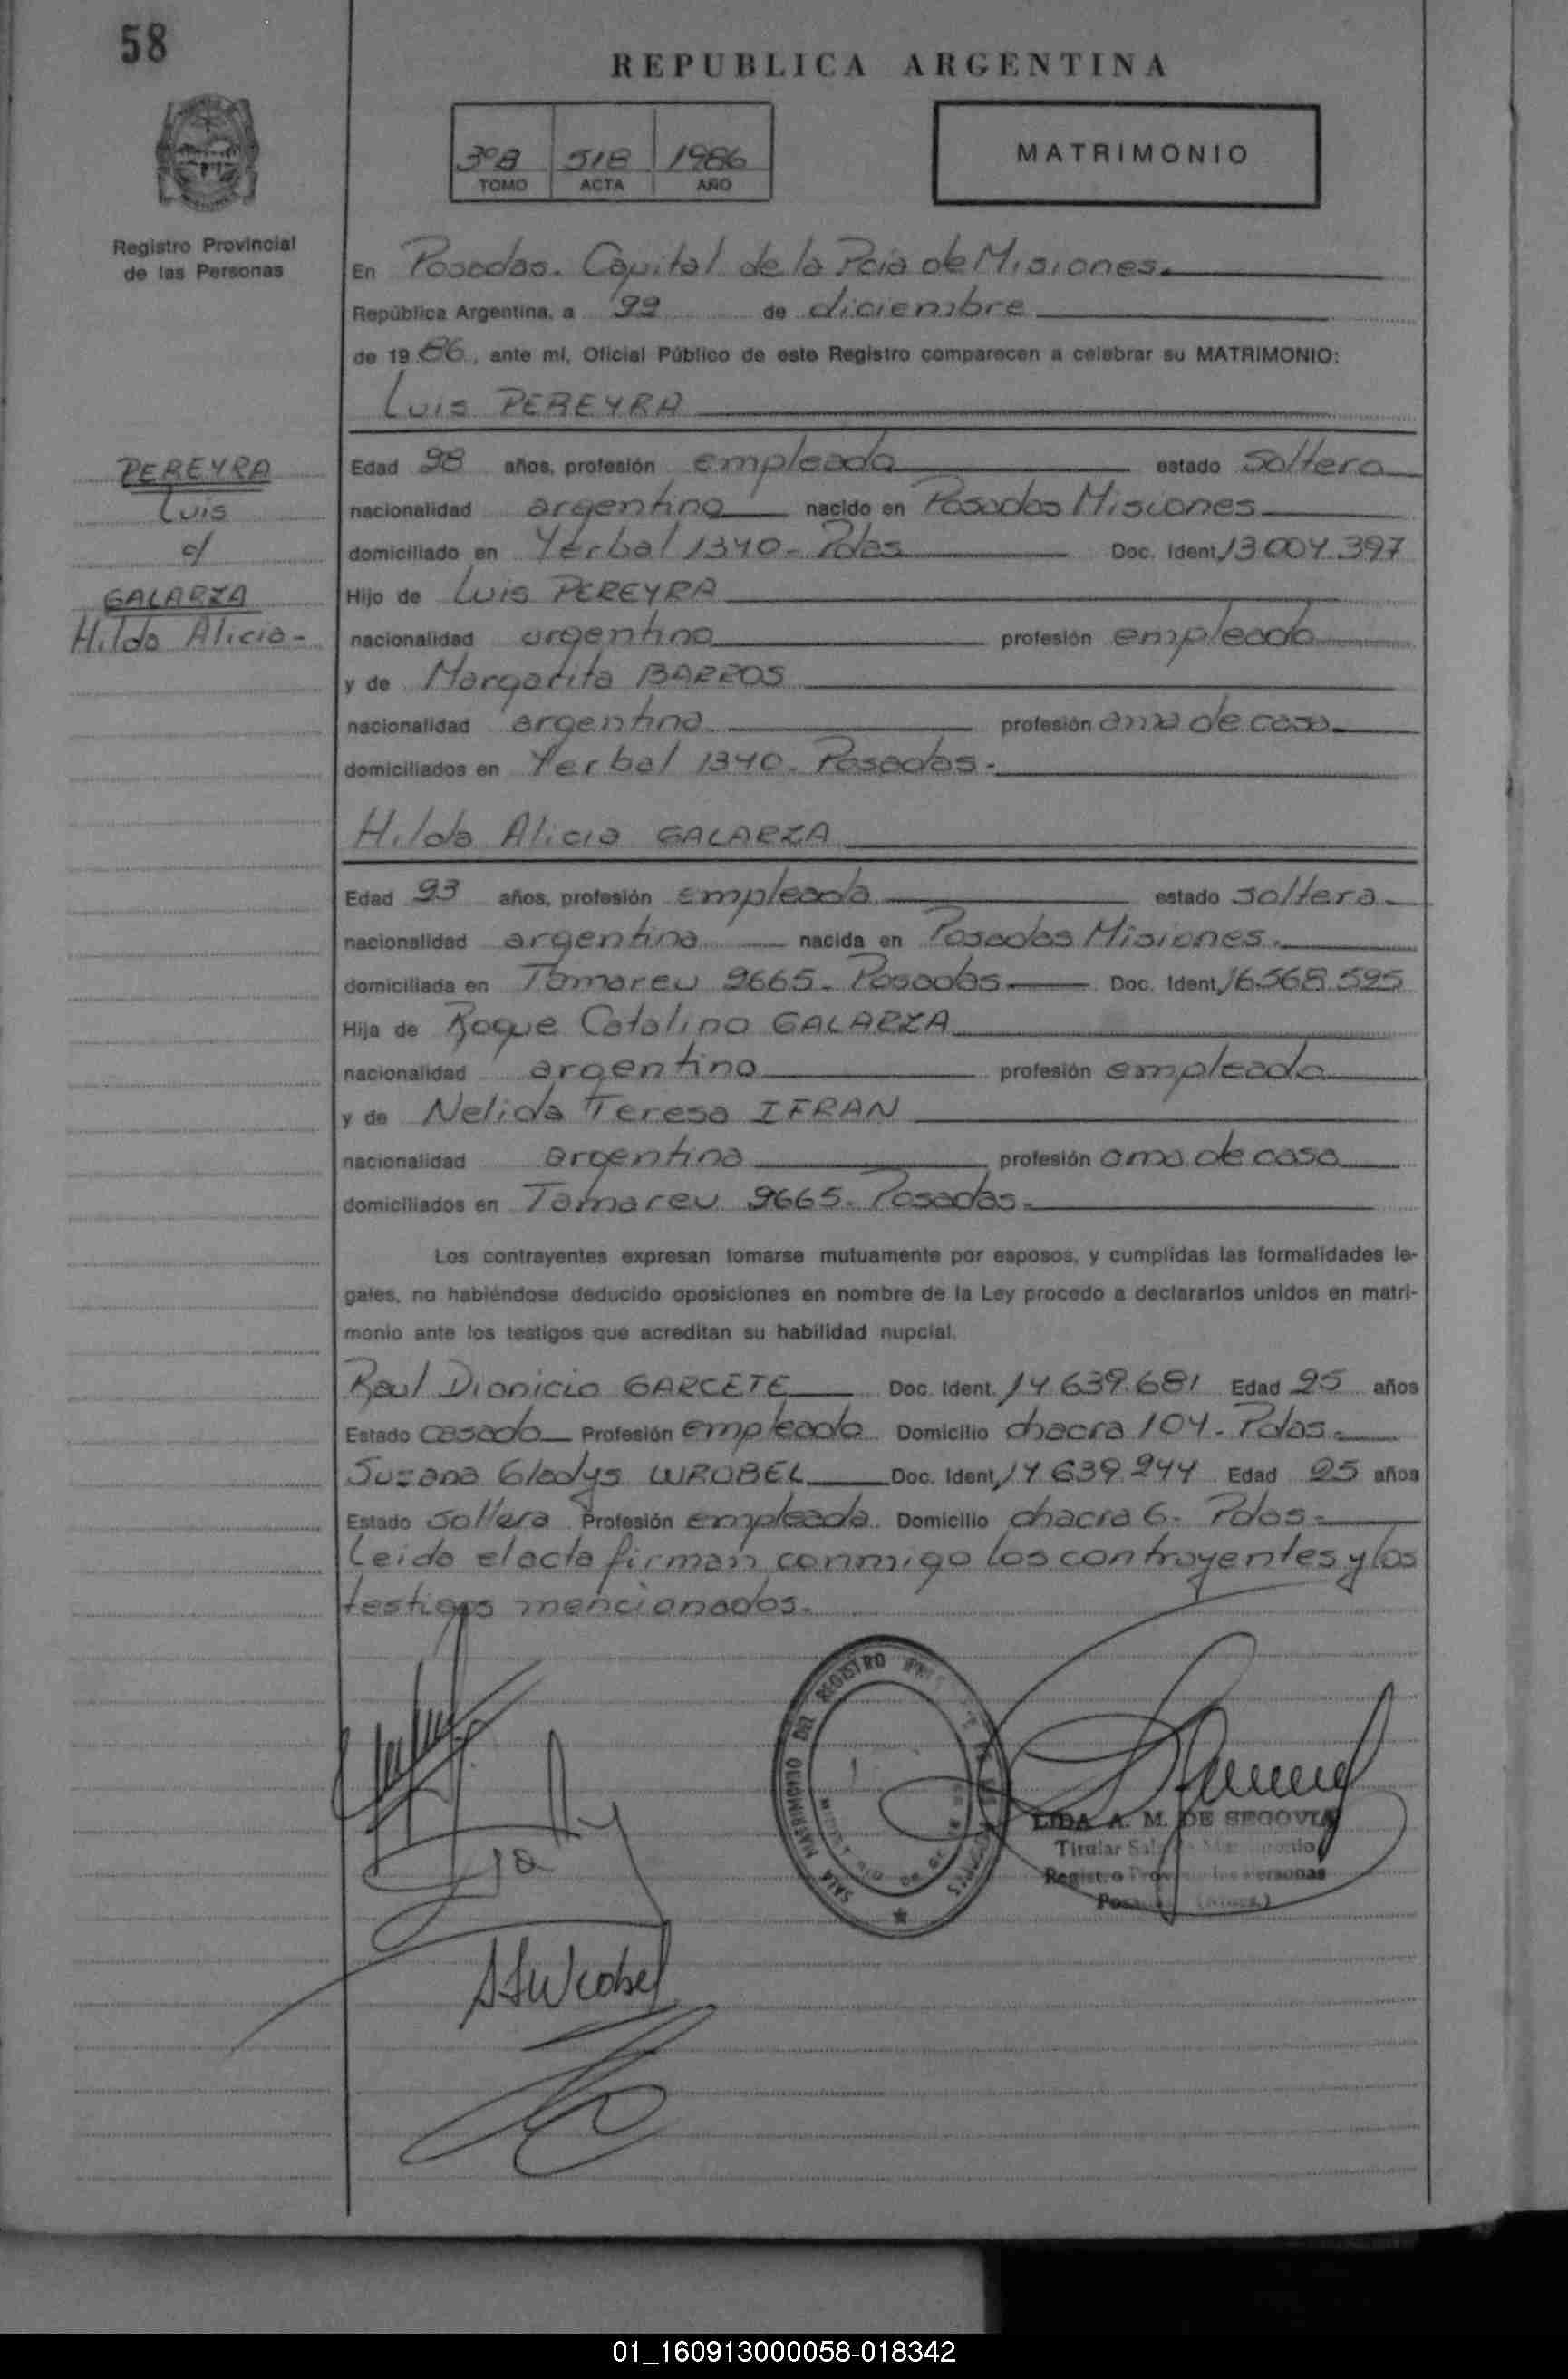 58
REPUBLICA ARGENTINA
3ºB 518 1986
TOMO ACTA AÑO
MATRIMONIO
Registro Provincial
de las Personas
En Posadas. Capital de la Pcia de Misiones.
República Argentina, a 22 de diciembre
de 1986, ante mí, Oficial Público de este Registro comparecen a celebrar su MATRIMONIO:
Luis PEREYRA
PEREYRA
Luis
c/
GALARZA
Hilda Alicia-
Edad 28 años, profesión empleado estado soltero
nacionalidad argentina nacido en Posadas Misiones
domiciliado en Yerbal 1340- Pdas Doc. Ident. 13.004.397
Hijo de Luis PEREYRA
nacionalidad argentino profesión empleado
y de Margarita BARROS
nacionalidad argentina profesión ama de casa
domiciliados en Yerbal 1340- Posadas.
Hilda Alicia GALARZA
Edad 23 años, profesión empleada estado soltera
nacionalidad argentina nacida en Posadas Misiones.
domiciliada en Tamareu 2665- Posadas Doc. Ident. 16.568.525
Hija de Roque Catalino GALARZA
nacionalidad argentino profesión empleado
y de Nelida Teresa IFRAN
nacionalidad argentina profesión ama de casa
domiciliados en Tamareu 2665- Posadas.
Los contrayentes expresan tomarse mutuamente por esposos, y cumplidas las formalidades le-
gales, no habiéndose deducido oposiciones en nombre de la Ley procedo a declararlos unidos en matri-
monio ante los testigos que acreditan su habilidad nupcial.
Raul Dionicio GARCETE Doc. Ident. 14.639.681 Edad 25 años
Estado casado Profesión empleado Domicilio chacra 104- Pdas.
Susana Gladys WROBEL Doc. Ident. 14.639.244 Edad 25 años
Estado soltera Profesión empleada Domicilio chacra 6- Pdas-
Leida el acta firman conmigo los contrayentes y los
testigos mencionados.
SALA MATRIMONIO DEL REGISTRO
LIDA A. M. DE SEGOVIA
Titular
Registro
SGWrobel
01_160913000058-018342